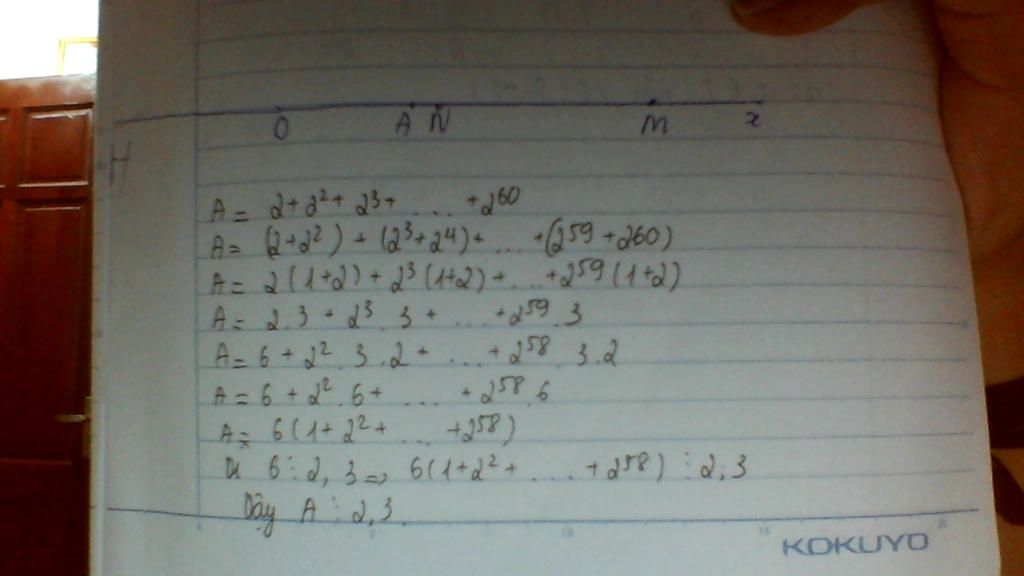 O A N M x
A = 2 + 2² + 2³ + .... + 2⁶⁰
A = (2+2²) + (2³+2⁴) + ... + (2⁵⁹ + 260)
A = 2(1+2) + 2³(1+2) + ... + 2⁵⁹(1+2)
A = 2.3 + 2³.3 + .... + 2⁵⁹.3
A = 6 + 2².3.2 + .... + 2⁵⁸.3.2
A = 6 + 2².6 + .... + 2⁵⁸.6
A = 6(1+2²+ .... +2⁵⁸)
6 ⋮ 2, 3 => 6(1+2²+ .... + 2⁵⁸) ⋮ 2; 3
Vậy A ⋮ 2,3.
KOKUYO